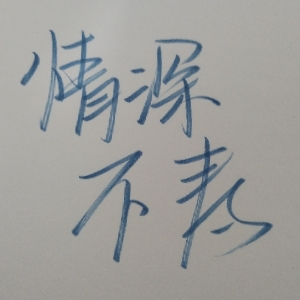 情深
不寿